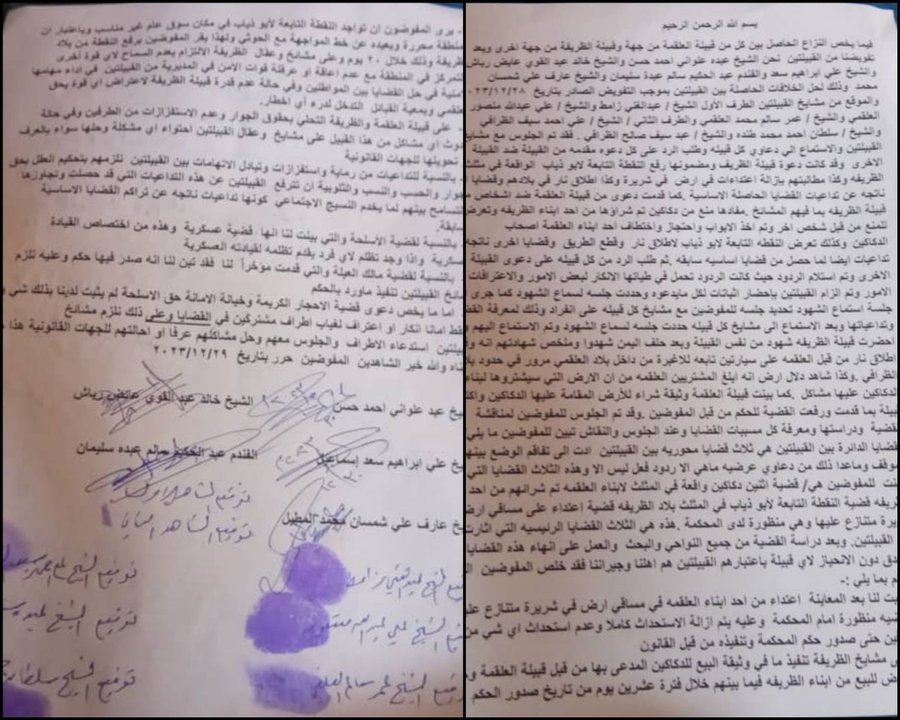 بسم الله الرحمن الرحيم
فيما يخص النزاع الحاصل بين كل من قبيلة العلقمة من جهة وقبيلة الظريفة من جهة اخرى وبعد
تفويضنا من القبيلتين نحن الشيخ عبده علواني احمد حسن والشيخ خالد عبد القوي عايض رباش
والشيخ علي ابراهيم سعد والفندم عبد الحكيم سالم عبدة سليمان والشيخ عارف علي شمسان
محمد وذلك لحل الخلافات الحاصلة بين القبيلتين بموجب التفويض الصادر بتاريخ ٢٠٢٣/١٢/٢٨
والموقع من مشايخ القبيلتين الطرف الأول الشيخ / عبدالغني زامط والشيخ / علي عبدالله منصور
العلقمي والشيخ / عمر سالم محمد العلقمي والطرف الثاني / الشيخ / علي احمد سيف الظرافي
والشيخ / سلطان احمد محمد طنده والشيخ / عبد سيف صالح الظرافي . فقد تم الجلوس مع مشايخ
القبيلتين والاستماع الى دعاوي كل قبيله وطلب الرد على كل دعوه مقدمه من القبيلة ضد القبيلة
الاخرى وقد كانت دعوة قبيلة الظريف ومضمونها رفع النقطة التابعة لابو ذياب الواقعة في مثلث
الظريفه وكذا مطالبتهم بإزالة اعتداءات في ارض في شريرة وكذا اطلاق نار في بلادهم وقضايا
ناتجه عن تداعيات القضايا الحاصلة الاساسية .كما قدمت دعوى من قبيلة العلقمة ضد اشخاص
قبيلة الظريفه بما فيهم المشائخ .مفادها منع من دكاكين تم شراؤها من احد ابناء الظريفه وتعرض
للمنع من قبل شخص اخر وتم اخذ الابواب واحتجاز واختطاف احد ابناء العلقمة اصحاب
الدكاكين وكذلك تعرض النقطه التابعة لابو ذياب لاطلاق نار وقطع الطريق وقضايا اخرى ناتجه
تداعيات ايضا لما حصل من قضايا اساسيه سابقه .ثم طلب الرد من كل قبيله على دعوى القبيلة
الاخرى وتم استلام الردود حيث كانت الردود تحمل في طياتها الانكار لبعض الامور والاعترافات
الامور وتم الزام القبيلتين بإحضار اثباتات لكل مايدعوه وحددت جلسه لسماع الشهود كما جرى
جلسة استماع الشهود تحديد جلسه للمفوضين مع مشايخ كل قبيله على انفراد وذلك لمعرفة القضايا
وتداعياتها وبعد الاستماع الى مشايخ كل قبيله حددت جلسه لسماع الشهود وتم الاستماع اليهم
احضرت قبيلة الظريفه شهود من نفس القبيلة وبعد حلف اليمن شهدوا وملخص شهادتهم انه
إطلاق نار من قبل العلقمه على سيارتين تابعه للاغبرة من داخل بلاد العلقمي مرور في حدود بلاد
الظرافي .وكذا شاهد دلال ارض انه ابلغ المشتريين العلقمه من ان الارض التي سيشتروها لبناء
الدكاكين عليها مشاكل .كما بينت قبيلة العلقمة وثيقة شراء للأرض المقامة عليها الدكاكين
قبيلة بما قدمت ورفعت القضية للحكم من قبل المفوضين .وقد تم الجلوس للمفوضين لمناقشة
قضية ودراستها ومعرفة كل مسببات القضايا وعند الجلوس والنقاش تبين للمفوضين ما يلي
قضايا الدائرة بين القبيلتين هي ثلاث قضايا محوريه بين القبيلتين ادت الى تفاقم الوضع بينهم
موقف وماعدا ذلك من دعاوي عرضيه ماهي الا ردود فعل ليس الا وهذه الثلاث القضايا التي
للمفوضين هي/ قضية اثنين دكاكين واقعة في المثلث لابناء العلقمه تم شرائهم من احد
ظريفه قضية النقطة التابعة لابو ذياب في المثلث بلاد الظريفه قضية اعتداء على مساقي ارض
متنازع عليها وهي منظورة لدى المحكمة .هذه هي الثلاث القضايا الرئيسيه التي اثارت
القبيلتين. وبعد دراسة القضية من جميع النواحي والبحث والعمل على انهاء هذه القضايا
دون الانحياز لاي قبيلة باعتبارهم القبيلتين هم اهلنا وجيراننا فقد خلص المفوضين
بما يلي :-
لنا بعد المعاينة اعتداء من احد ابناء العلقمه في مساقي ارض في شريرة متنازع عليها
منظورة امام المحكمة وعليه يتم ازالة الاستحداث كاملا وعدم استحداث اي شي من
حتى صدور حكم المحكمة وتنفيذه من قبل القانون
مشايخ الظريفة تنفيذ ما في وثيقة البيع للدكاكين المدعى بها من قبل قبيلة العلقمة
للبيع من ابناء الظريفه فيما بينهم خلال فترة عشرين يوم من تاريخ صدور الحكم
- يرى المفوضون ان تواجد النقطة التابعة لابو ذياب في مكان سوق عام غير مناسب وباعتبار ان
منطقة محررة وبعيده عن خط المواجهة مع الحوثي ولهذا يقر المفوضين برفع النقطة من بلاد
الظريفة وذلك خلال ٢٠ يوم وعلى مشايخ وعقال الظريفة الالتزام بعدم السماح لاي قوة اخرى
التمركز في المنطقة مع عدم اعاقة او عرقلة قوات الامن في المديرية من القبيلتين في اداء مهامها
الامنية في حل القضايا بين المواطنين وفي حالة عدم قدرة قبيلة الظريفة لاعتراض اي قوة يحق
العلقمي وبمعية القبائل التدخل لدرء أي اخطار.
- على قبيلة العلقمة والظريفة التحلي بحقوق الجوار وعدم الاستفزازات من الطرفين وفي حالة
حدوث أي مشاكل من هذا القبيل على مشايخ وعقال القبيلتين احتواء اي مشكلة وحلها سواء بالعرف
تحويلها للجهات القانونية
- بالنسبة للتداعيات من رماية واستفزازات وتبادل الاتهامات بين القبيلتين نلزمهم بتحكيم العقل بحق
الجوار والحسب والنسب والتلوبية ان تترفع القبيلتين عن هذه التداعيات التي قد حصلت وتجاوزها
التسامح بينهم لما يخدم النسيج الاجتماعي كونها تداعيات ناتجه عن تراكم القضايا الاساسية
سابقة.
بالنسبة لقضية الأسلحة والتي بينت لنا انها قضية عسكرية وهذه من اختصاص القيادة
العسكرية واذا وجد تظلم لأي فرد يقدم تظلمه لقيادته العسكرية
بالنسبة لقضية مالك العيلة والتي قدمت مؤخراً لنا فقد تبن لنا انه صدر فيها حكم وعليه نلزم
مشائخ القبيلتين تنفيذ ماورد بالحكم
اما ما يخص دعوى قضية الاحجار الكريمة وخيانة الامانة حق الاسلحة لم يثبت لدينا بذلك شي
فقط امانا انكار او اعتراف لغياب اطراف مشتركين في القضايا وعلى ذلك نلزم مشائخ
القبيلتين استدعاء الاطراف والجلوس معهم وحل مشاكلهم عرفا او احالتهم للجهات القانونية هذا
والله خير الشاهدين المفوضين حرر بتاريخ ٢٠٢٣/١٢/٢٩
الشيخ عبد علواني احمد حسن
الشيخ خالد عبد القوي عايض رباش
الشيخ علي ابراهيم سعد اسماعيل
الفندم عبد الحكيم سالم عبده سليمان
الشيخ عارف علي شمسان محمد
توقيع الشاهد
توقيع الشاهد
توقيع الشيخ علي عبدالله منصور
توقيع الشيخ عمر سالم العلقمي
توقيع الشيخ علي احمد سيف
توقيع الشيخ
توقيع الشيخ سلطان